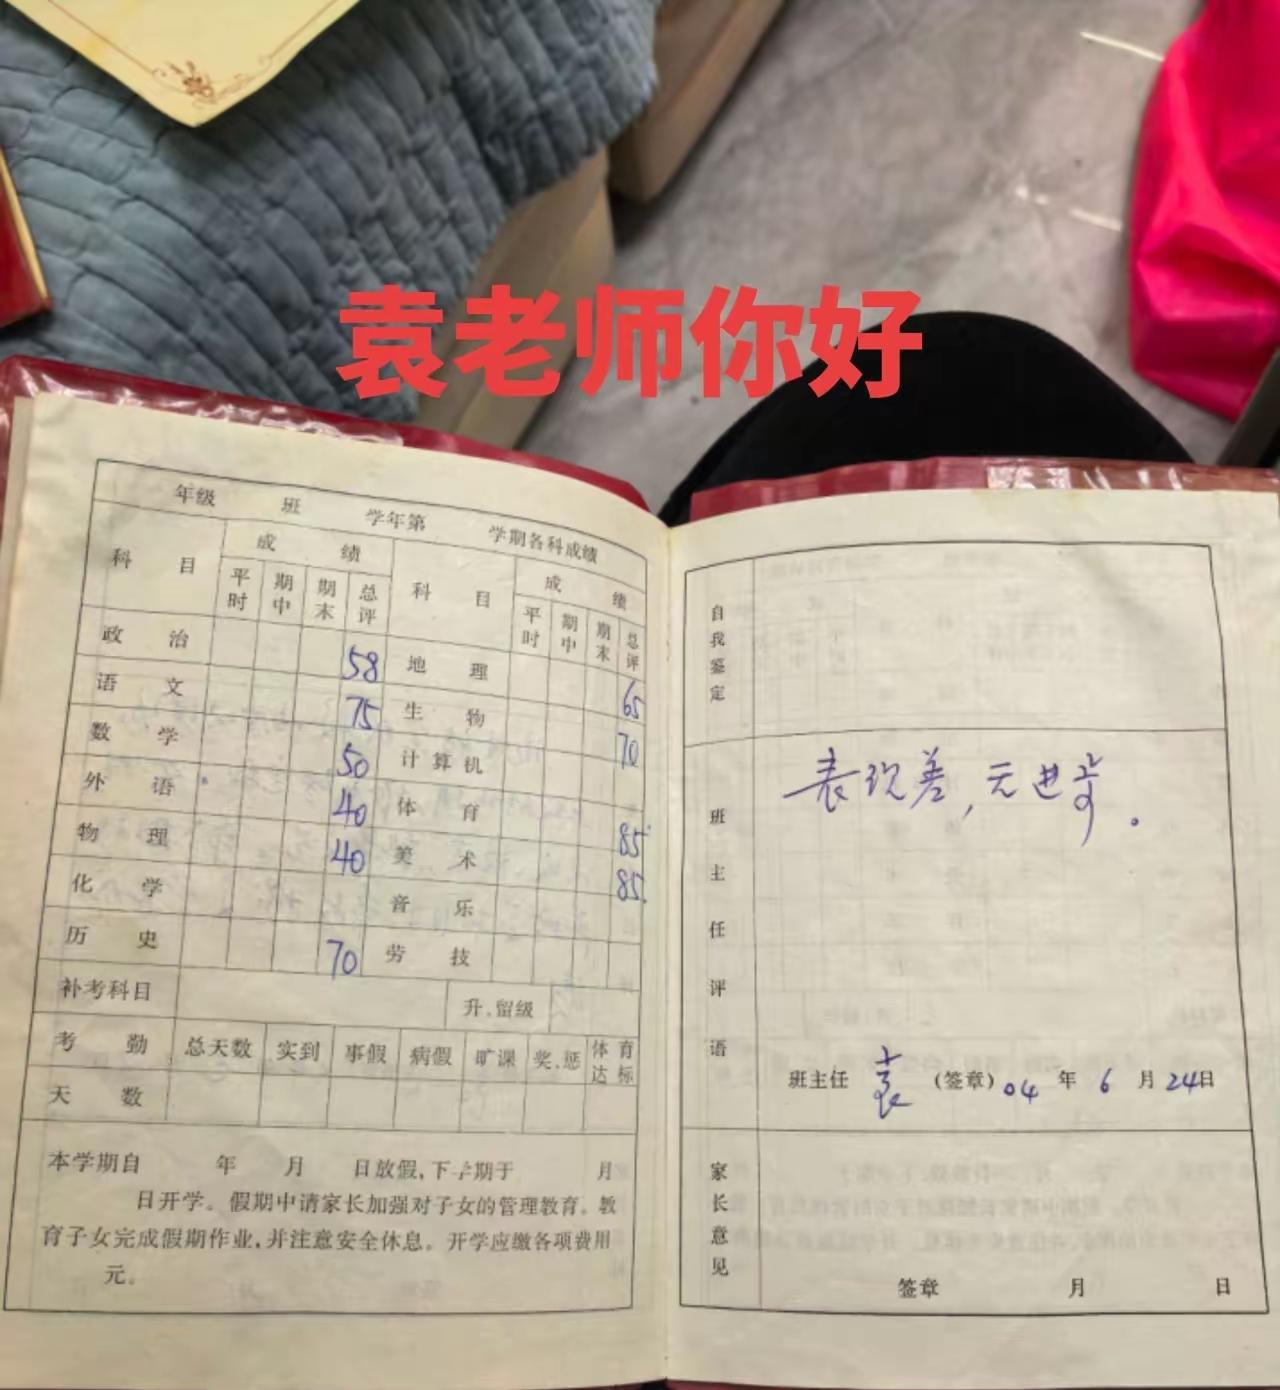 袁老师你好
年级 班 学年第 学期各科成绩
科 目 成 绩 科 目 成 绩
平时 期中 期末 总评 平时 期中 期末 总评
政 治 58 地 理 65
语 文 75 生 物 70
数 学 50 计 算 机
外 语 40 体 育 85
物 理 40 美 术 85
化 学 音 乐
历 史 70 劳 技
补考科目 升、留级
考 勤 总天数 实到 事假 病假 旷课 奖、惩 体育达标
天 数
本学期自 年 月 日放假,下学期于 月
日开学。假期中请家长加强对子女的管理教育。教
育子女完成假期作业,并注意安全休息。开学应缴各项费用
元。
自我鉴定
班主任评语
表现差,无进步。
班主任 袁 (签章) 04 年 6 月 24日
家长意见
签章 月 日